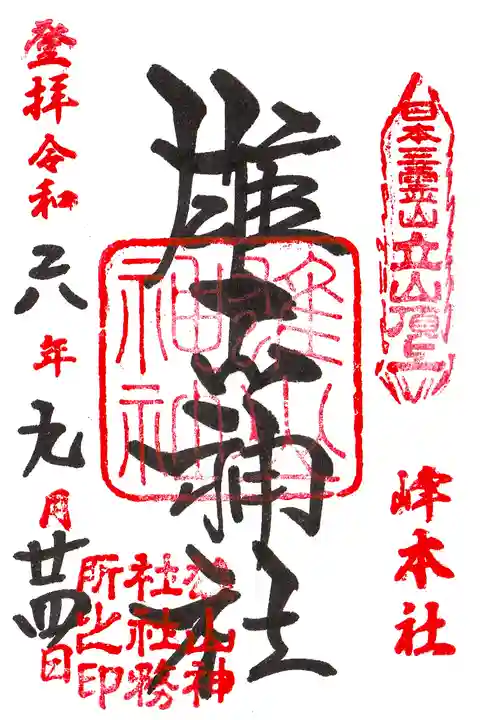 日本三霊山立山頂上
峰本社
雄山神社
雄山神社
雄山神
社社務
所之印
登拝令和六年九月廿四日